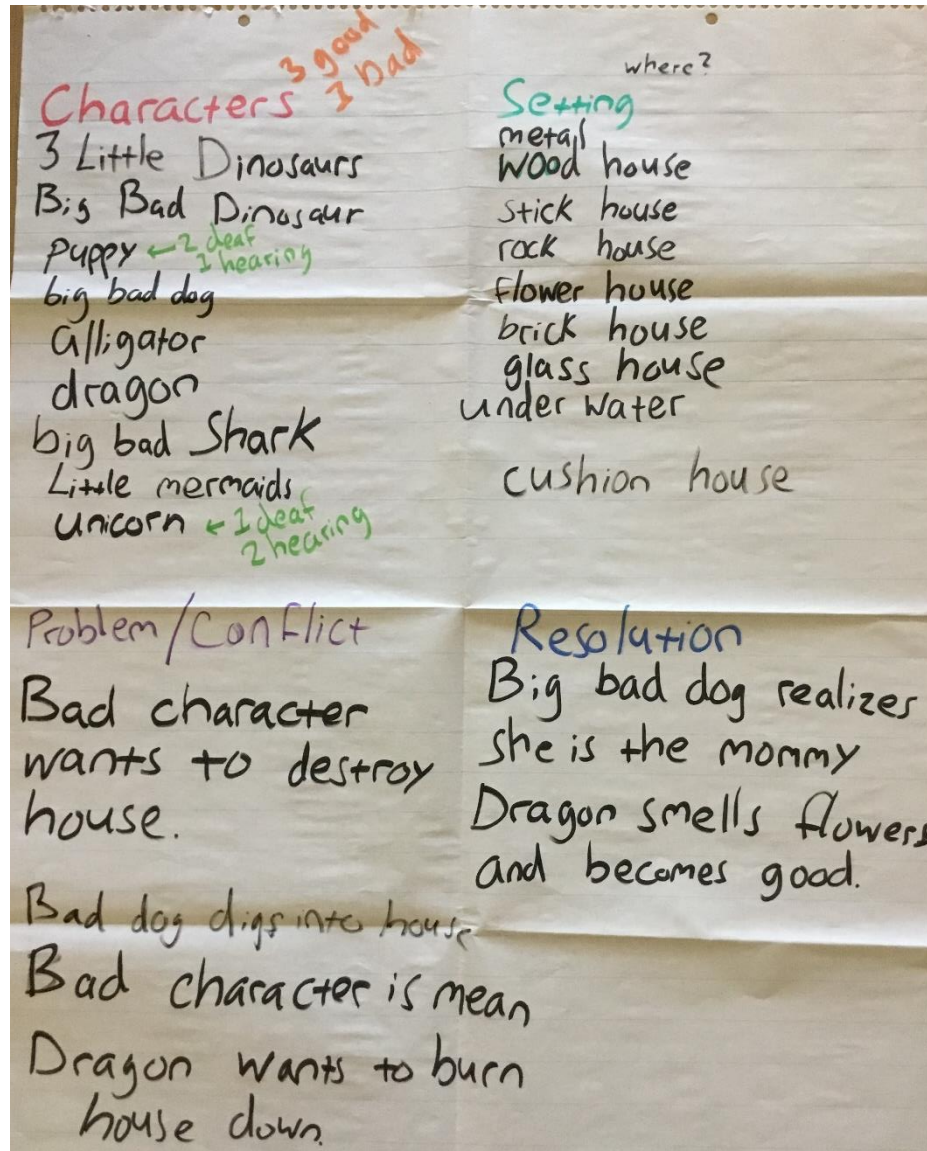 3 good
1 Bad
Characters
3 Little Dinosaurs
Big Bad Dinosaur
puppy ← 2 deaf
1 hearing
big bad dog
alligator
dragon
big bad Shark
Little mermaids
unicorn ← 1 deaf
2 hearing
where?
Setting
metal
wood house
stick house
rock house
flower house
brick house
glass house
under water
cushion house
Problem/Conflict
Bad character
wants to destroy
house.
Bad dog digs into house
Bad character is mean
Dragon wants to burn
house down.
Resolution
Big bad dog realizes
she is the mommy
Dragon smells flowers
and becomes good.